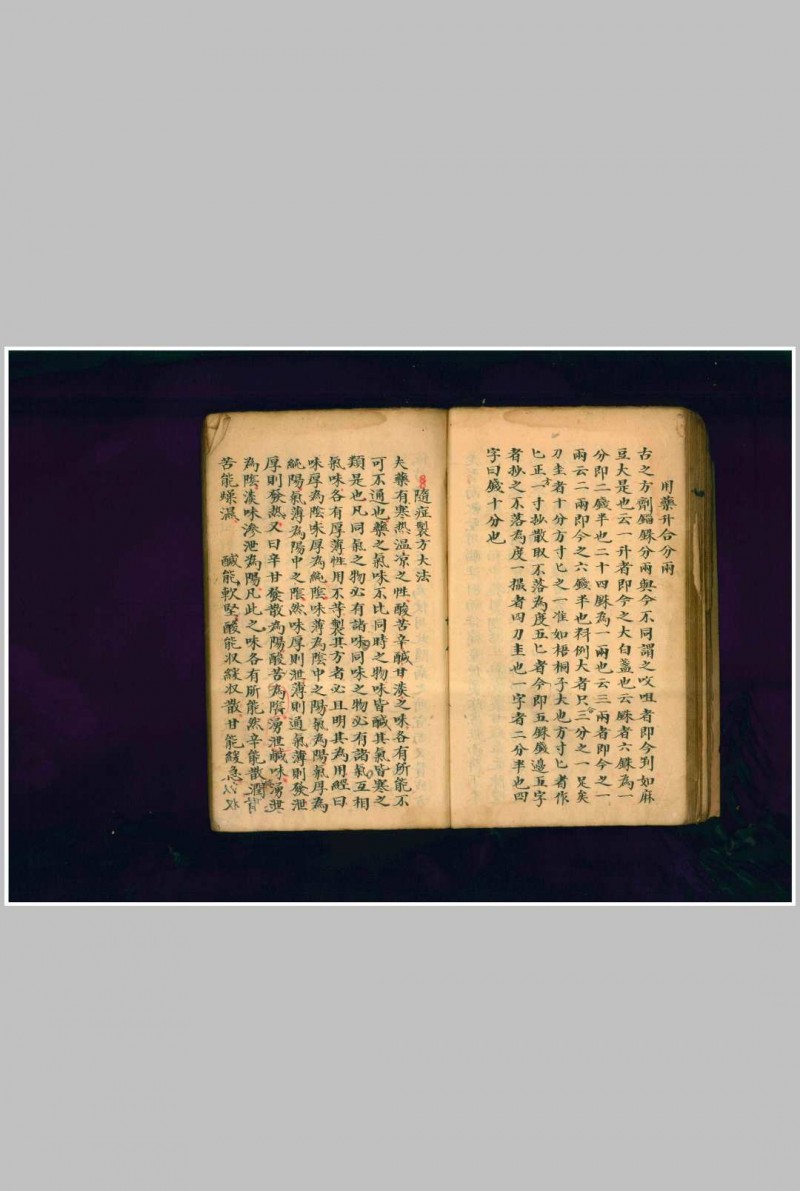 用藥升合分兩
古之方劑錙銖分兩與今不同謂之㕮咀者即今剉如麻
豆大是也云一升者即今之大白盞也云銖者六銖為一
分即二錢半也二十四銖為一兩也云三兩者即今之一
兩云二兩即今之六錢半也料例大者只三分之一足矣
刀圭者十分方寸匕之一准如梧桐子大也方寸匕者作
匕正一寸抄散取不落為度五匕者今即五銖錢邉五字
者抄之不落為度一撮者四刀圭也一字者二分半也四
字曰錢十分也
隨症製方大法
夫藥有寒熱温凉之性酸苦辛鹹甘淡之味各有所能不
可不通也藥之氣味不比同時之物味皆鹹其氣皆寒之
類是也凡同氣之物必有諸味同味之物必有諸氣互相
氣味各有厚薄性用不等製其方者必且明其為用經曰
味厚為陰味厚為純陰味薄為陰中之陽氣為陽氣厚為
純陽氣薄為陽中之陰然味厚則泄薄則通氣薄則發泄
厚則發热又曰辛甘發散為陽酸苦為陰湧泄鹹味湧泄
為陰淡味滲泄為陽凡此之味各有所能然辛能散潤
苦能燥濕 鹹能軟坚酸能收緩收散甘能緩急